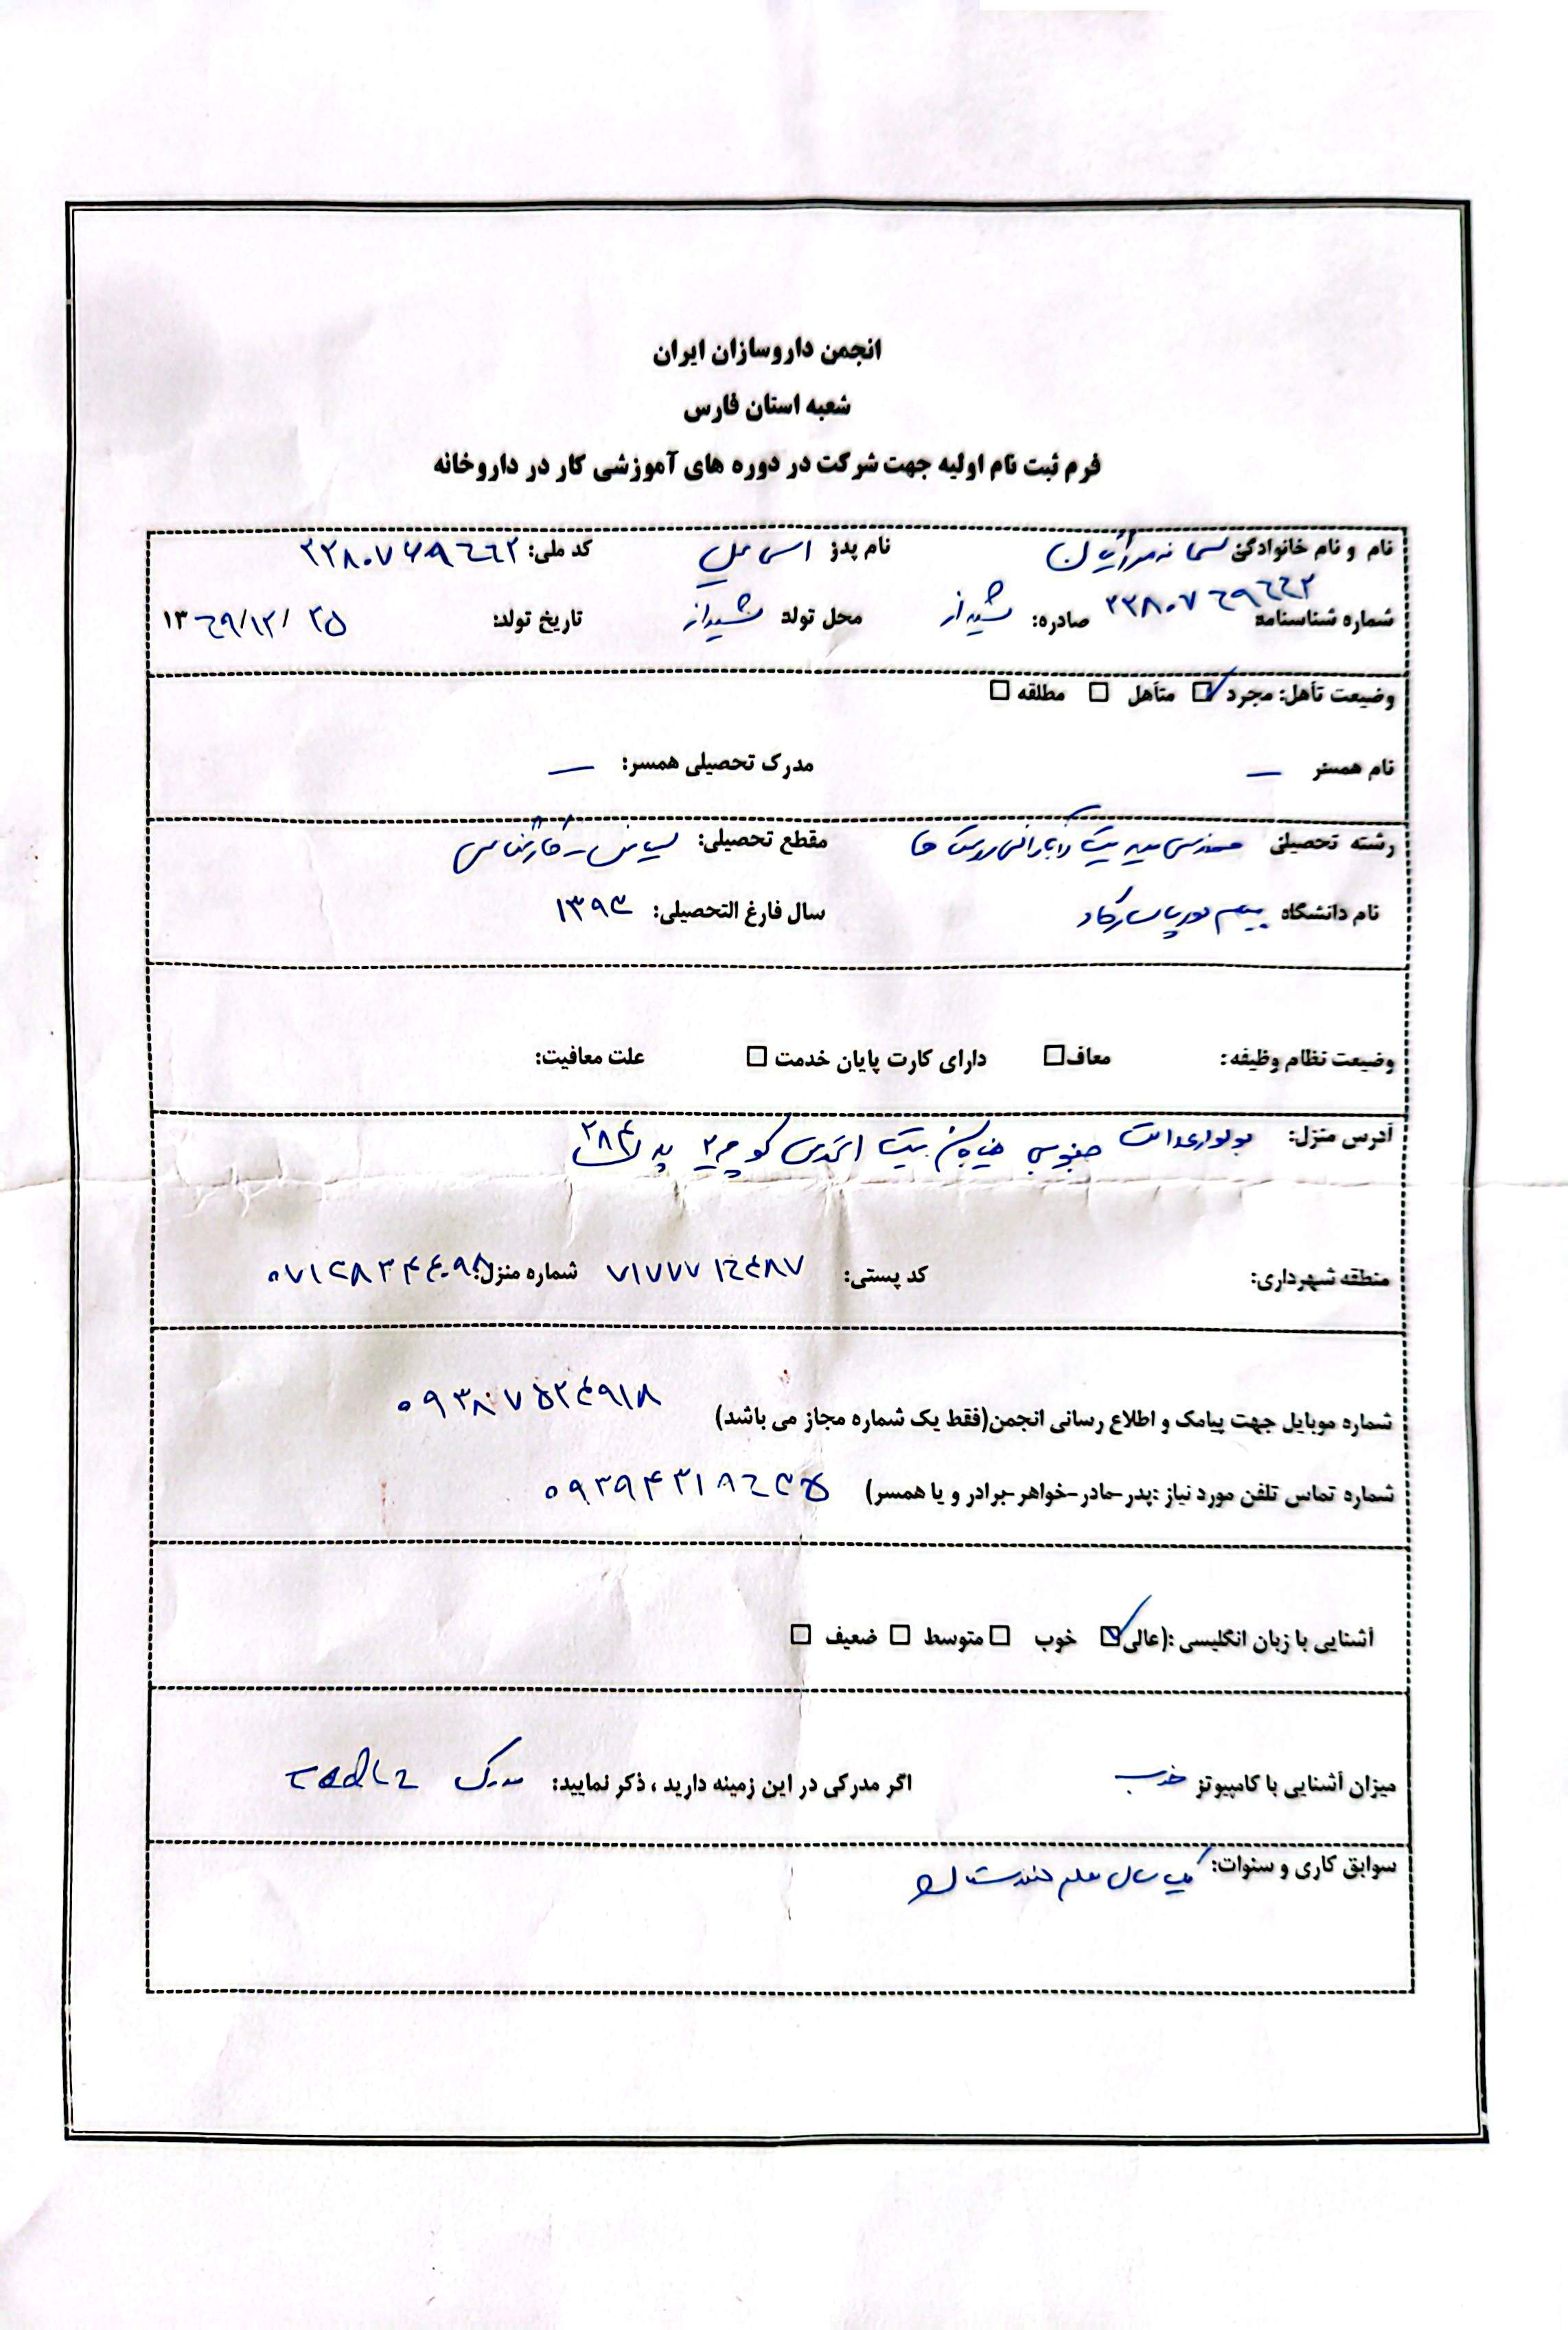 انجمن داروسازان ایران
شعبه استان فارس
فرم ثبت نام اولیه جهت شرکت در دوره های آموزشی کار در داروخانه
نام و نام خانوادگی: سمانه نام پدر: اسماعیل کد ملی:
شماره شناسنامه: صادره: شیراز محل تولد: شیراز تاریخ تولد: ۱۳۶۹/۱۲/۲۵
وضعیت تأهل: مجرد ☑ متأهل □ مطلقه □
نام همسر: — مدرک تحصیلی همسر: —
رشته تحصیلی: مهندسی مدیریت و آبادانی روستاها مقطع تحصیلی: لیسانس - کارشناسی
نام دانشگاه: پیام نور پاسارگاد سال فارغ التحصیلی: ۱۳۹۳
وضعیت نظام وظیفه: معاف □ دارای کارت پایان خدمت □ علت معافیت:
آدرس منزل: بولوار عدالت جنوبی خیابان بیست متری کوچه ۲ پلاک ۲۸۴
منطقه شهرداری: کد پستی: ۷۱۷۷۷۱۶۴۸۷ شماره منزل:
شماره موبایل جهت پیامک و اطلاع رسانی انجمن(فقط یک شماره مجاز می باشد) ۰۹۳۸۷۵۲۴۹۱۸
شماره تماس تلفن مورد نیاز :پدر-مادر-خواهر-برادر و یا همسر) ۰۹۳۹۴۳۱۸۶۳۵
آشنایی با زبان انگلیسی :(عالی ☑ خوب □ متوسط □ ضعیف □
میزان آشنایی با کامپیوتر: خوب اگر مدرکی در این زمینه دارید ، ذکر نمایید: مدرک
سوابق کاری و سنوات: یک سال معلم